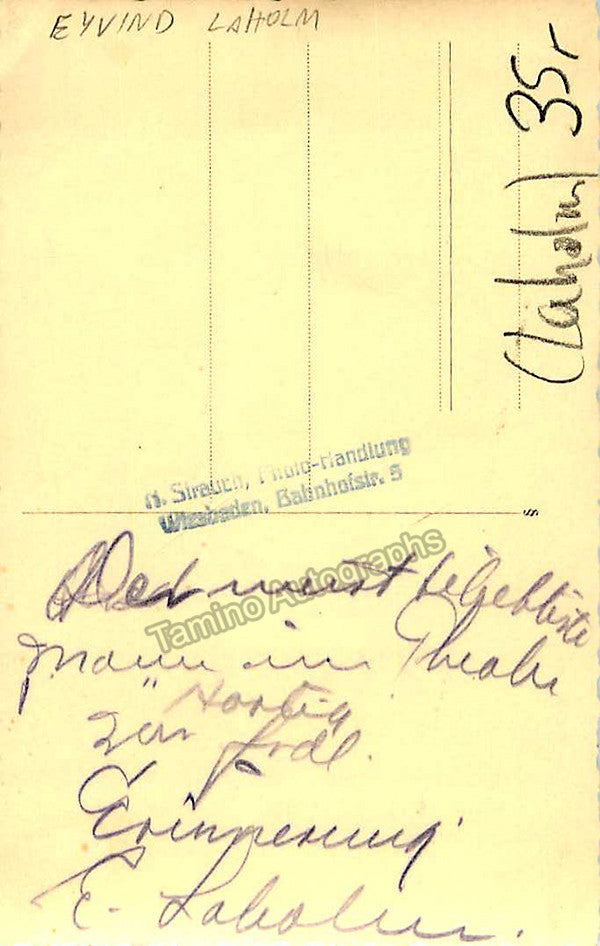 EYVIND LAHOLM
(Laholm) 35r
H. Strauch, Photo-Handlung
Wiesbaden, Bahnhofstr. 5
Tamino Autographs
Der meist beliebteste
Mann im Theater
zur frdl.
Erinnerung
E. Laholm.